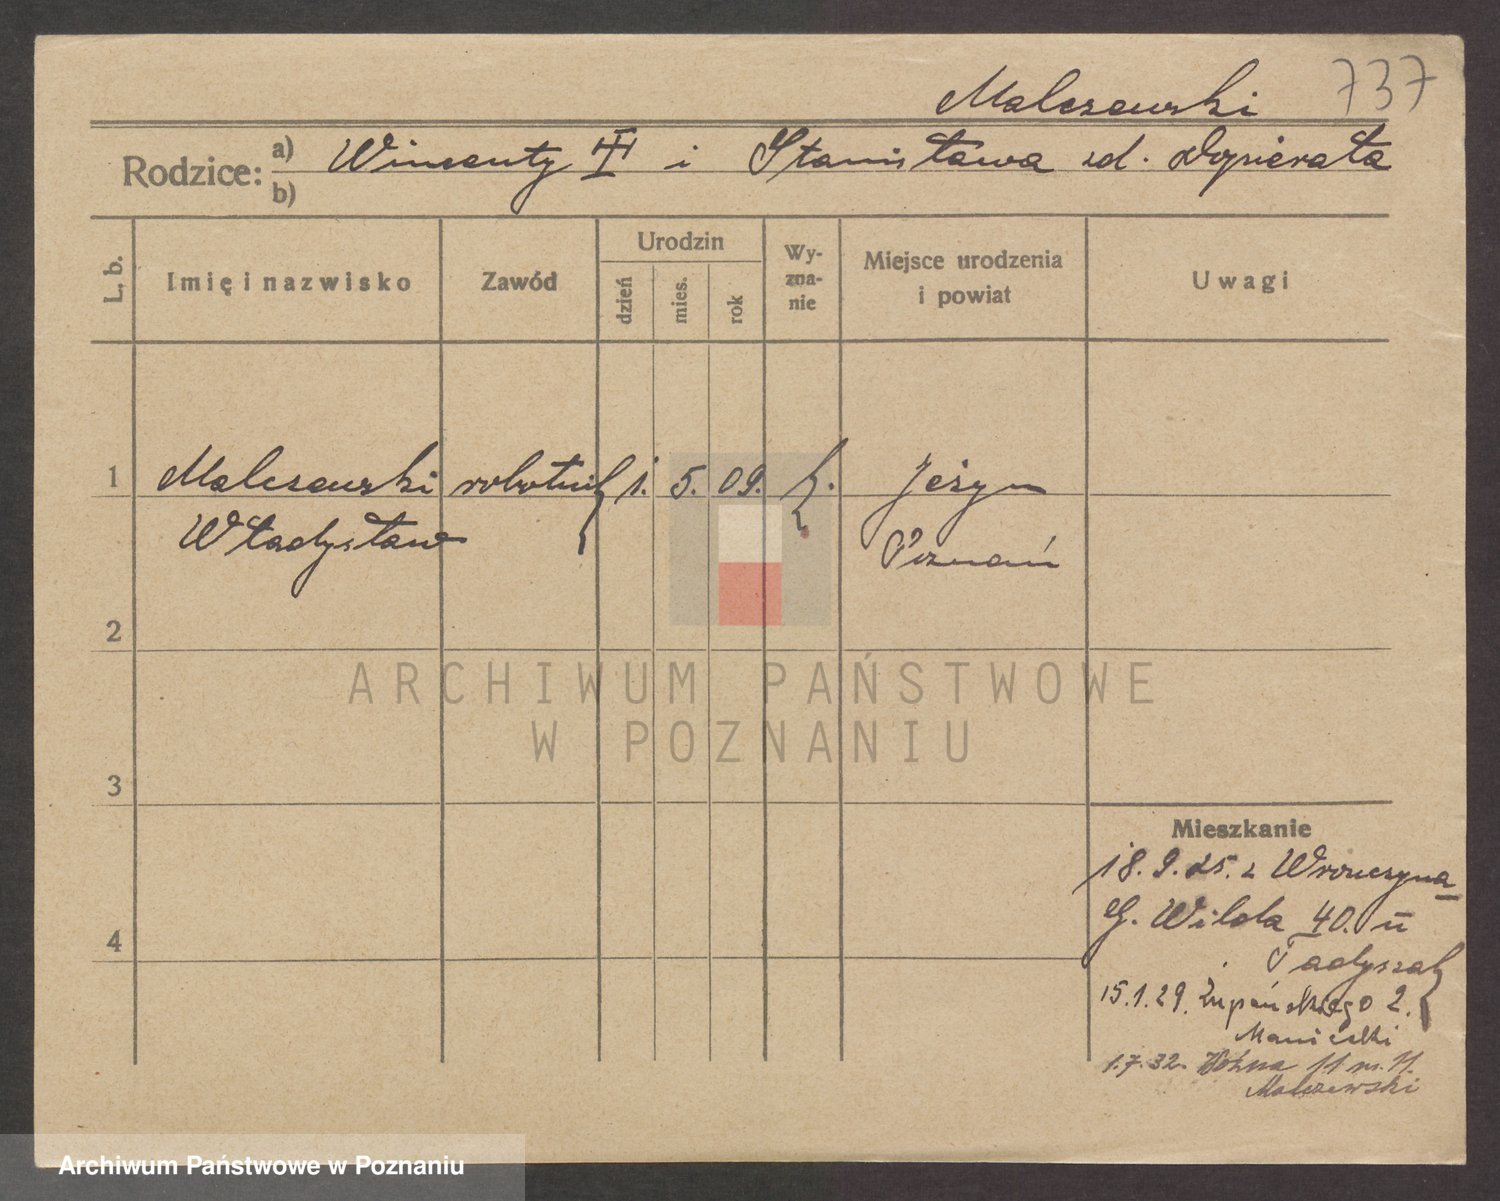 Malczewski 737
Rodzice: a) Wincenty i Stanisława zd. Dopierała
b)
L. b. Imię i nazwisko Zawód Urodzin dzień mies. rok Wy-zna-nie Miejsce urodzenia i powiat Uwagi
1 Malczewski robotnik 1. 5. 09. k. Jeżyce
Władysław Poznań
2
ARCHIWUM PAŃSTWOWE
W POZNANIU
3
Mieszkanie
18.9.25. z Wronczyna
G. Wilda 40. II
4
Tadyszak
15.1.29. Żupańskiego 2.
1.7.32. Woźna 11 m. 11.
Malczewski
Archiwum Państwowe w Poznaniu